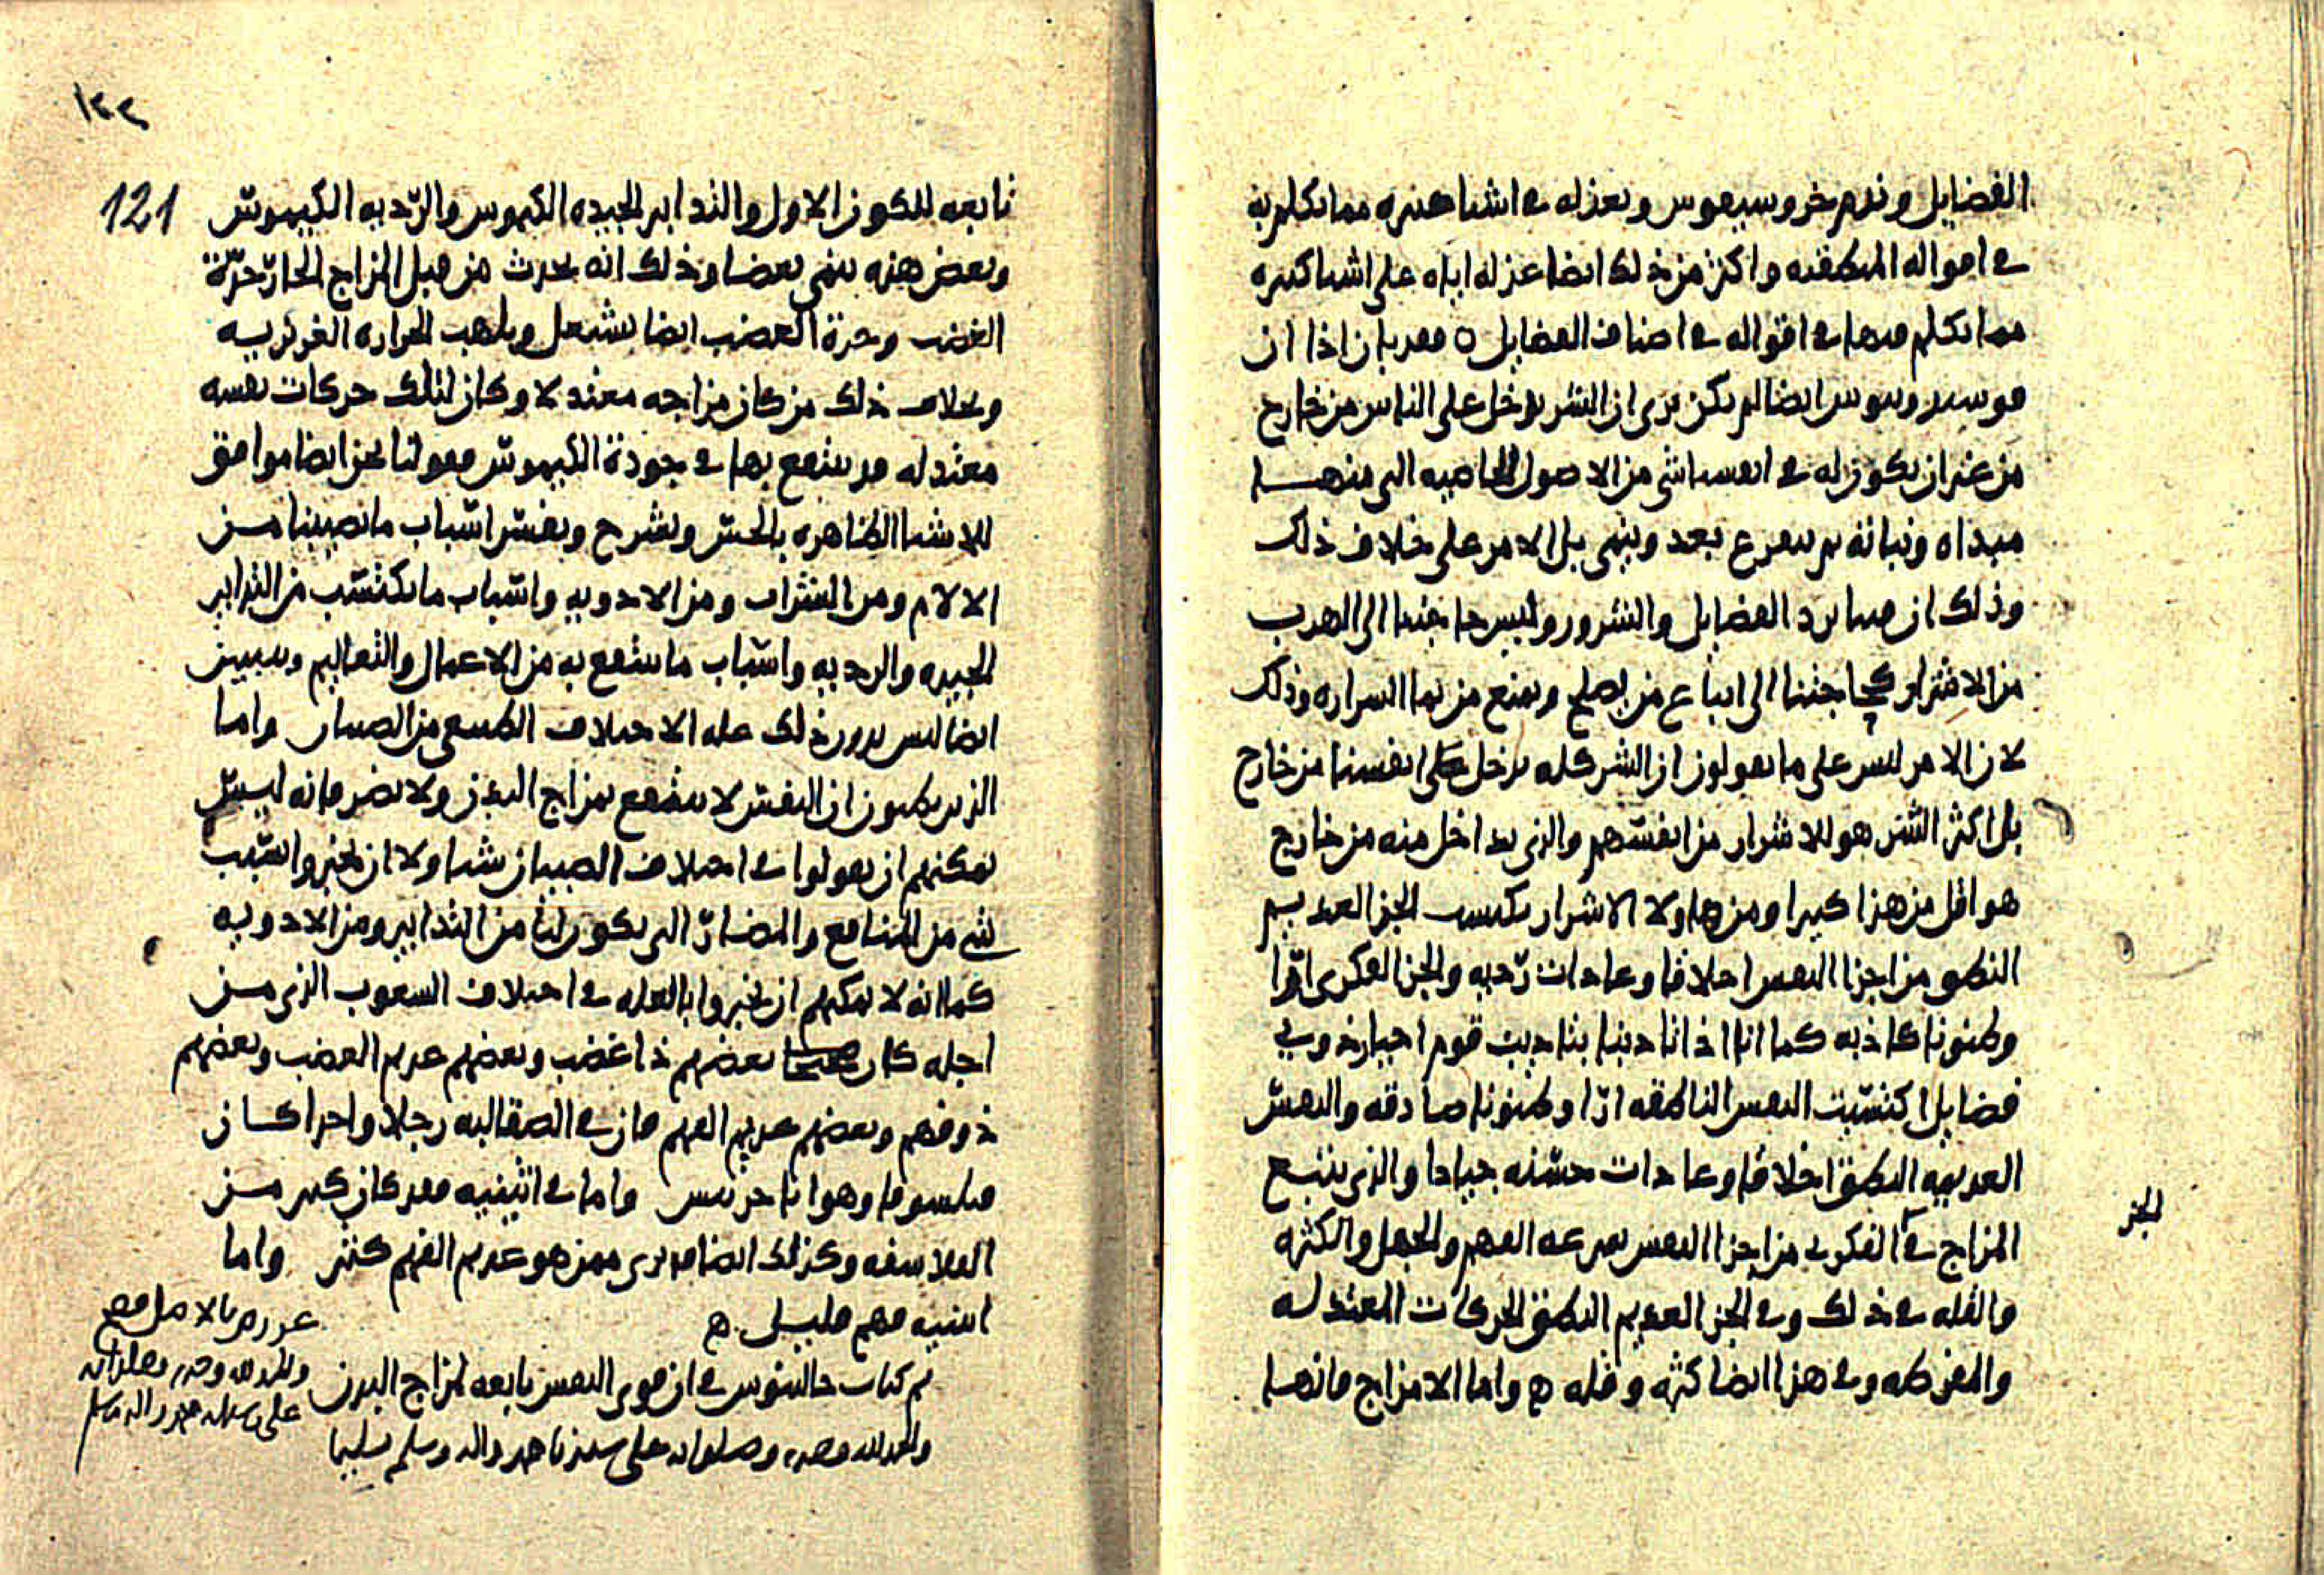 الفضايل وندم خروسيبوس وبعذله في اشيا هىره مما تكلم به
في اقواله المنطقيه واكثر من ذلك ايضا عذله اياه على اشيا كثيره
مما تكلم فيها في اقواله في اصناف الفضايل ه فقد بان اذا ان
ايضا لم يكن يرى ان الشر يدخل على الناس من خارج
من غير ان يكون له في انفسنا شي من الاصول الخاصيه التي منها
مبداه ونباته ثم يتفرع بعد وينمى بل الامر على خلاف ذلك
وذلك ان فينا بزر الفضايل والشرور وليس حاجتنا الى الهرب
من الاشرار كحاجتنا الى اتباع من يصلح ويمنع من نما الشراره وذلك
لان الامر ليس على ما يقولون ان الشر كله يدخل على انفسنا من خارج
بل اكثر الشر هو للاشرار من انفسهم والذي يداخل منه من خارج
هو اقل من هذا كثيرا ومن هاولا الاشرار يكتسب الجز العديم
النطق من اجزا النفس اخلاقا وعادات رديه والجز الفكرى ارا
وظنونا كاذبه كما انا اذا تادبنا بتاديب قوم اخيار ذوي
فضايل اكتسبت النفس الناطقه ارا وظنونا صادقه والنفس
العديمه النطق اخلاقا وعادات حسنه جيادا والذي يتبع
المزاج في الفكري من اجزا النفس سرعه الفهم والجهل والكثره
الجز
والقله في ذلك وفي الجز العديم النطق الحركات المعتدله
والمفرطه وفي هذا ايضا كثره وقله ه واما الامزاج فانها
١٢٢
121
تابعه للكون الاول والتدابير الجيده الكيموس والرديه الكيموس
وبعض هذه ينمي بعضا وذلك انه يحدث من قبل المزاج الحار حدة
الغضب وحدة الغضب ايضا يشعل ويلهب الحراره الغريزيه
وبخلاف ذلك من كان مزاجه معتدلا وكان لذلك حركات نفسه
معتدله فقد ينتفع بها في جودة الكيموس فقولنا نحن ايضا موافق
للاشيا الظاهره بالحس ويشرح ويفسر اسباب ما تصيبنا من
الالام ومن الشراب ومن الادويه واسباب ما يكتسب من التدابير
الجيده والرديه واسباب ما ينتفع به من الاعمال والتعاليم وسيبين
ايضا ليس بدون ذلك عله الاختلاف الطبيعي من الصبيان واما
الذين يظنون ان النفس لا ينتفع بمزاج البدن ولا يضر فانه ليس
يمكنهم ان يقولوا في اختلاف الصبيان شيا ولا ان يخبروا بسبب
شي من المنافع والمضار التي يكون لنا من التدابير ومن الادويه
كما انه لا يمكنهم ان يخبروا بالعله في اختلاف الشعوب الذي من
اجله كان بعضهم ذا غضب وبعضهم عديم الغضب وبعضهم
ذو فهم وبعضهم عديم الفهم فان في الصقالبه رجلا واحدا كان
فيلسوفا وهو اناخرسس واما في اثينيه فقد كان كثير من
الفلاسفه وكذلك ايضا قد يرى ممن هو عديم الفهم كثير واما
اثينيه فهم قليل ه
تم كتاب جالينوس في ان قوى النفس تابعه لمزاج البدن
والحمد لله وحده وصلواته على سيدنا محمد واله وسلم تسليما
عورض بالاصل فصح
والحمد لله وحده وصلواته
على سيدنا محمد واله وسلم